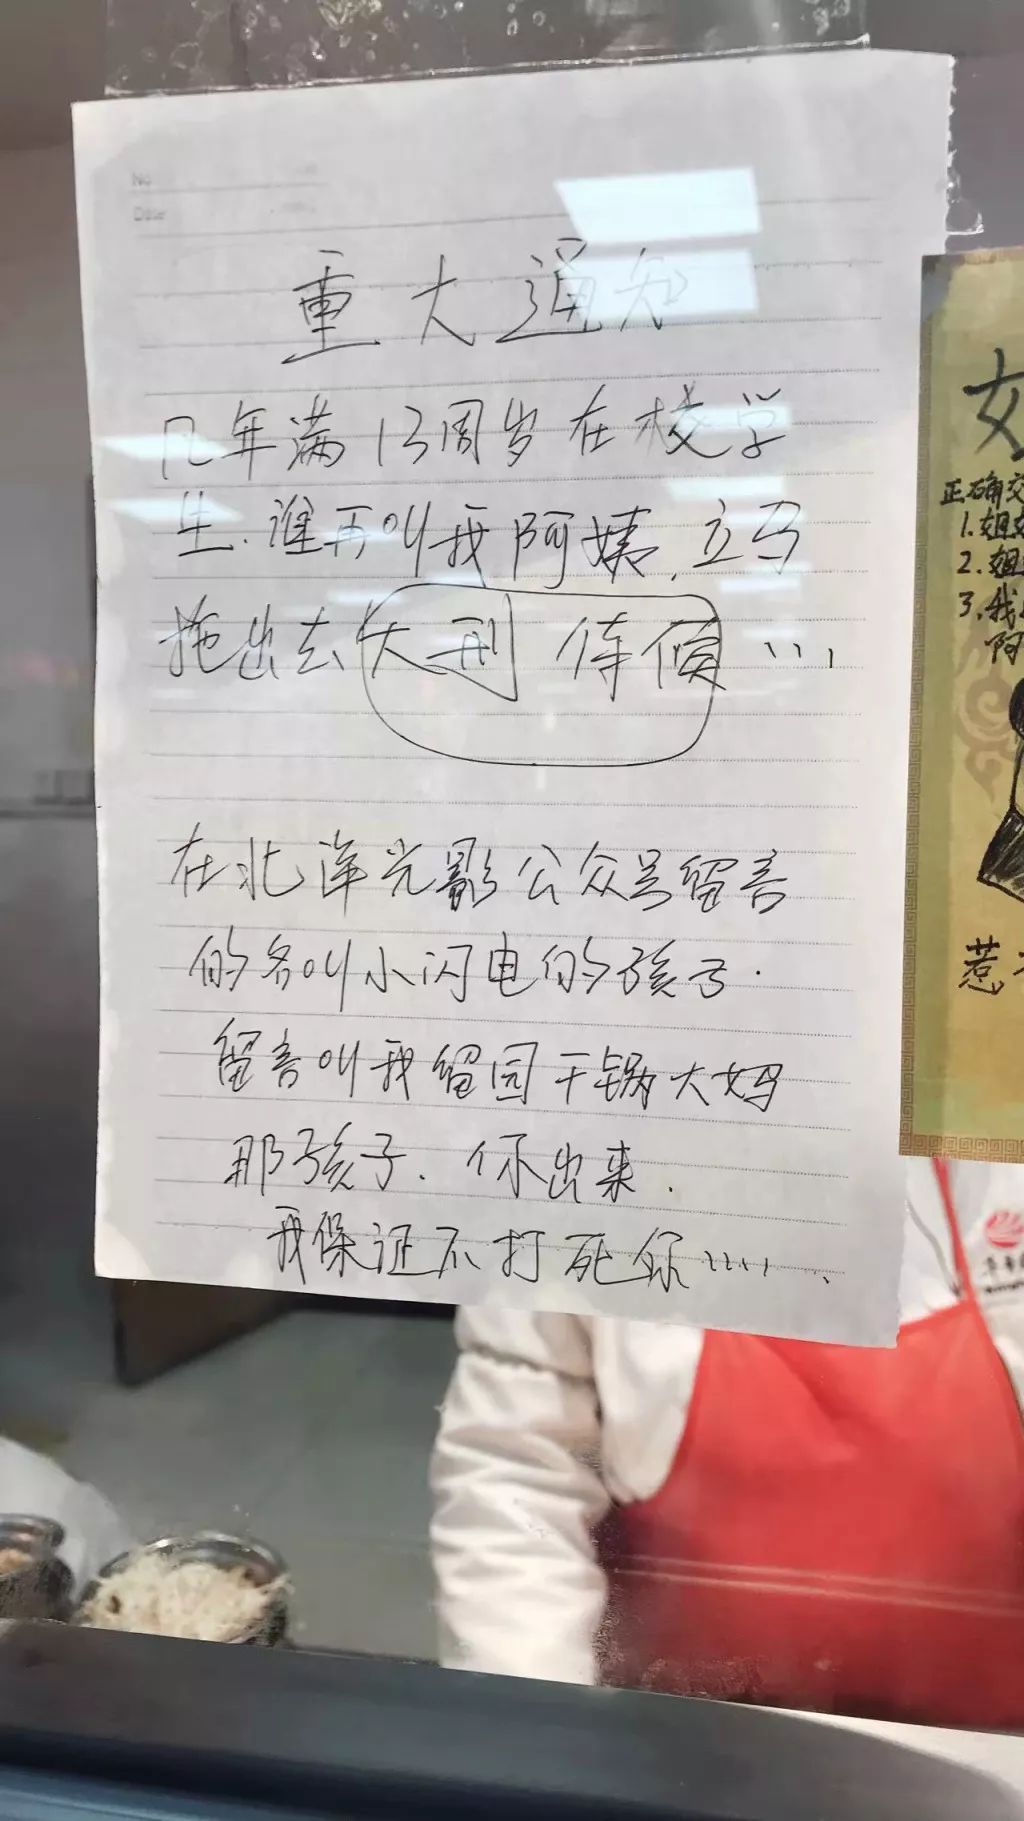 No
Date
重大通知
凡年满13周岁在校学
生.谁再叫我阿姨,立马
拖出去大刑侍候...
在北洋光影公众号留言
的名叫小闪电的孩子.
留言叫我留园干锅大妈
那孩子.你出来.
我保证不打死你.....
女
正确交
1.姐
2.姐
3.我
阿
惹